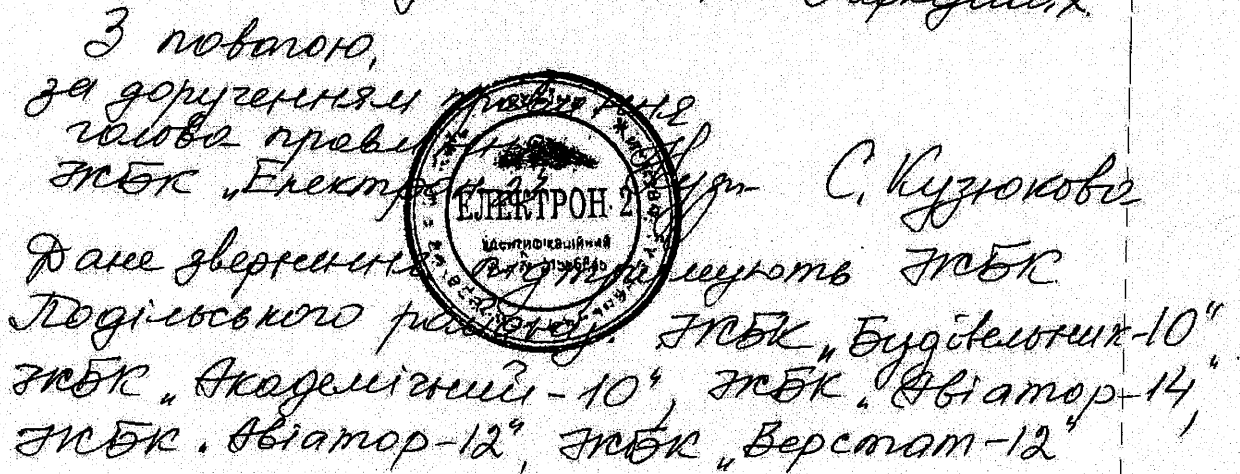 З повагою,
за дорученням правління
голова правління
ЖБК „Електрон-2" С. Кузюкова
ЕЛЕКТРОН-2
Ідентифікаційний
Дане звернення підтримують ЖБК
Подільського району: ЖБК „Будівельник-10"
ЖБК „Академічний-10", ЖБК „Авіатор-14",
ЖБК „Авіатор-12", ЖБК „Верстат-12"